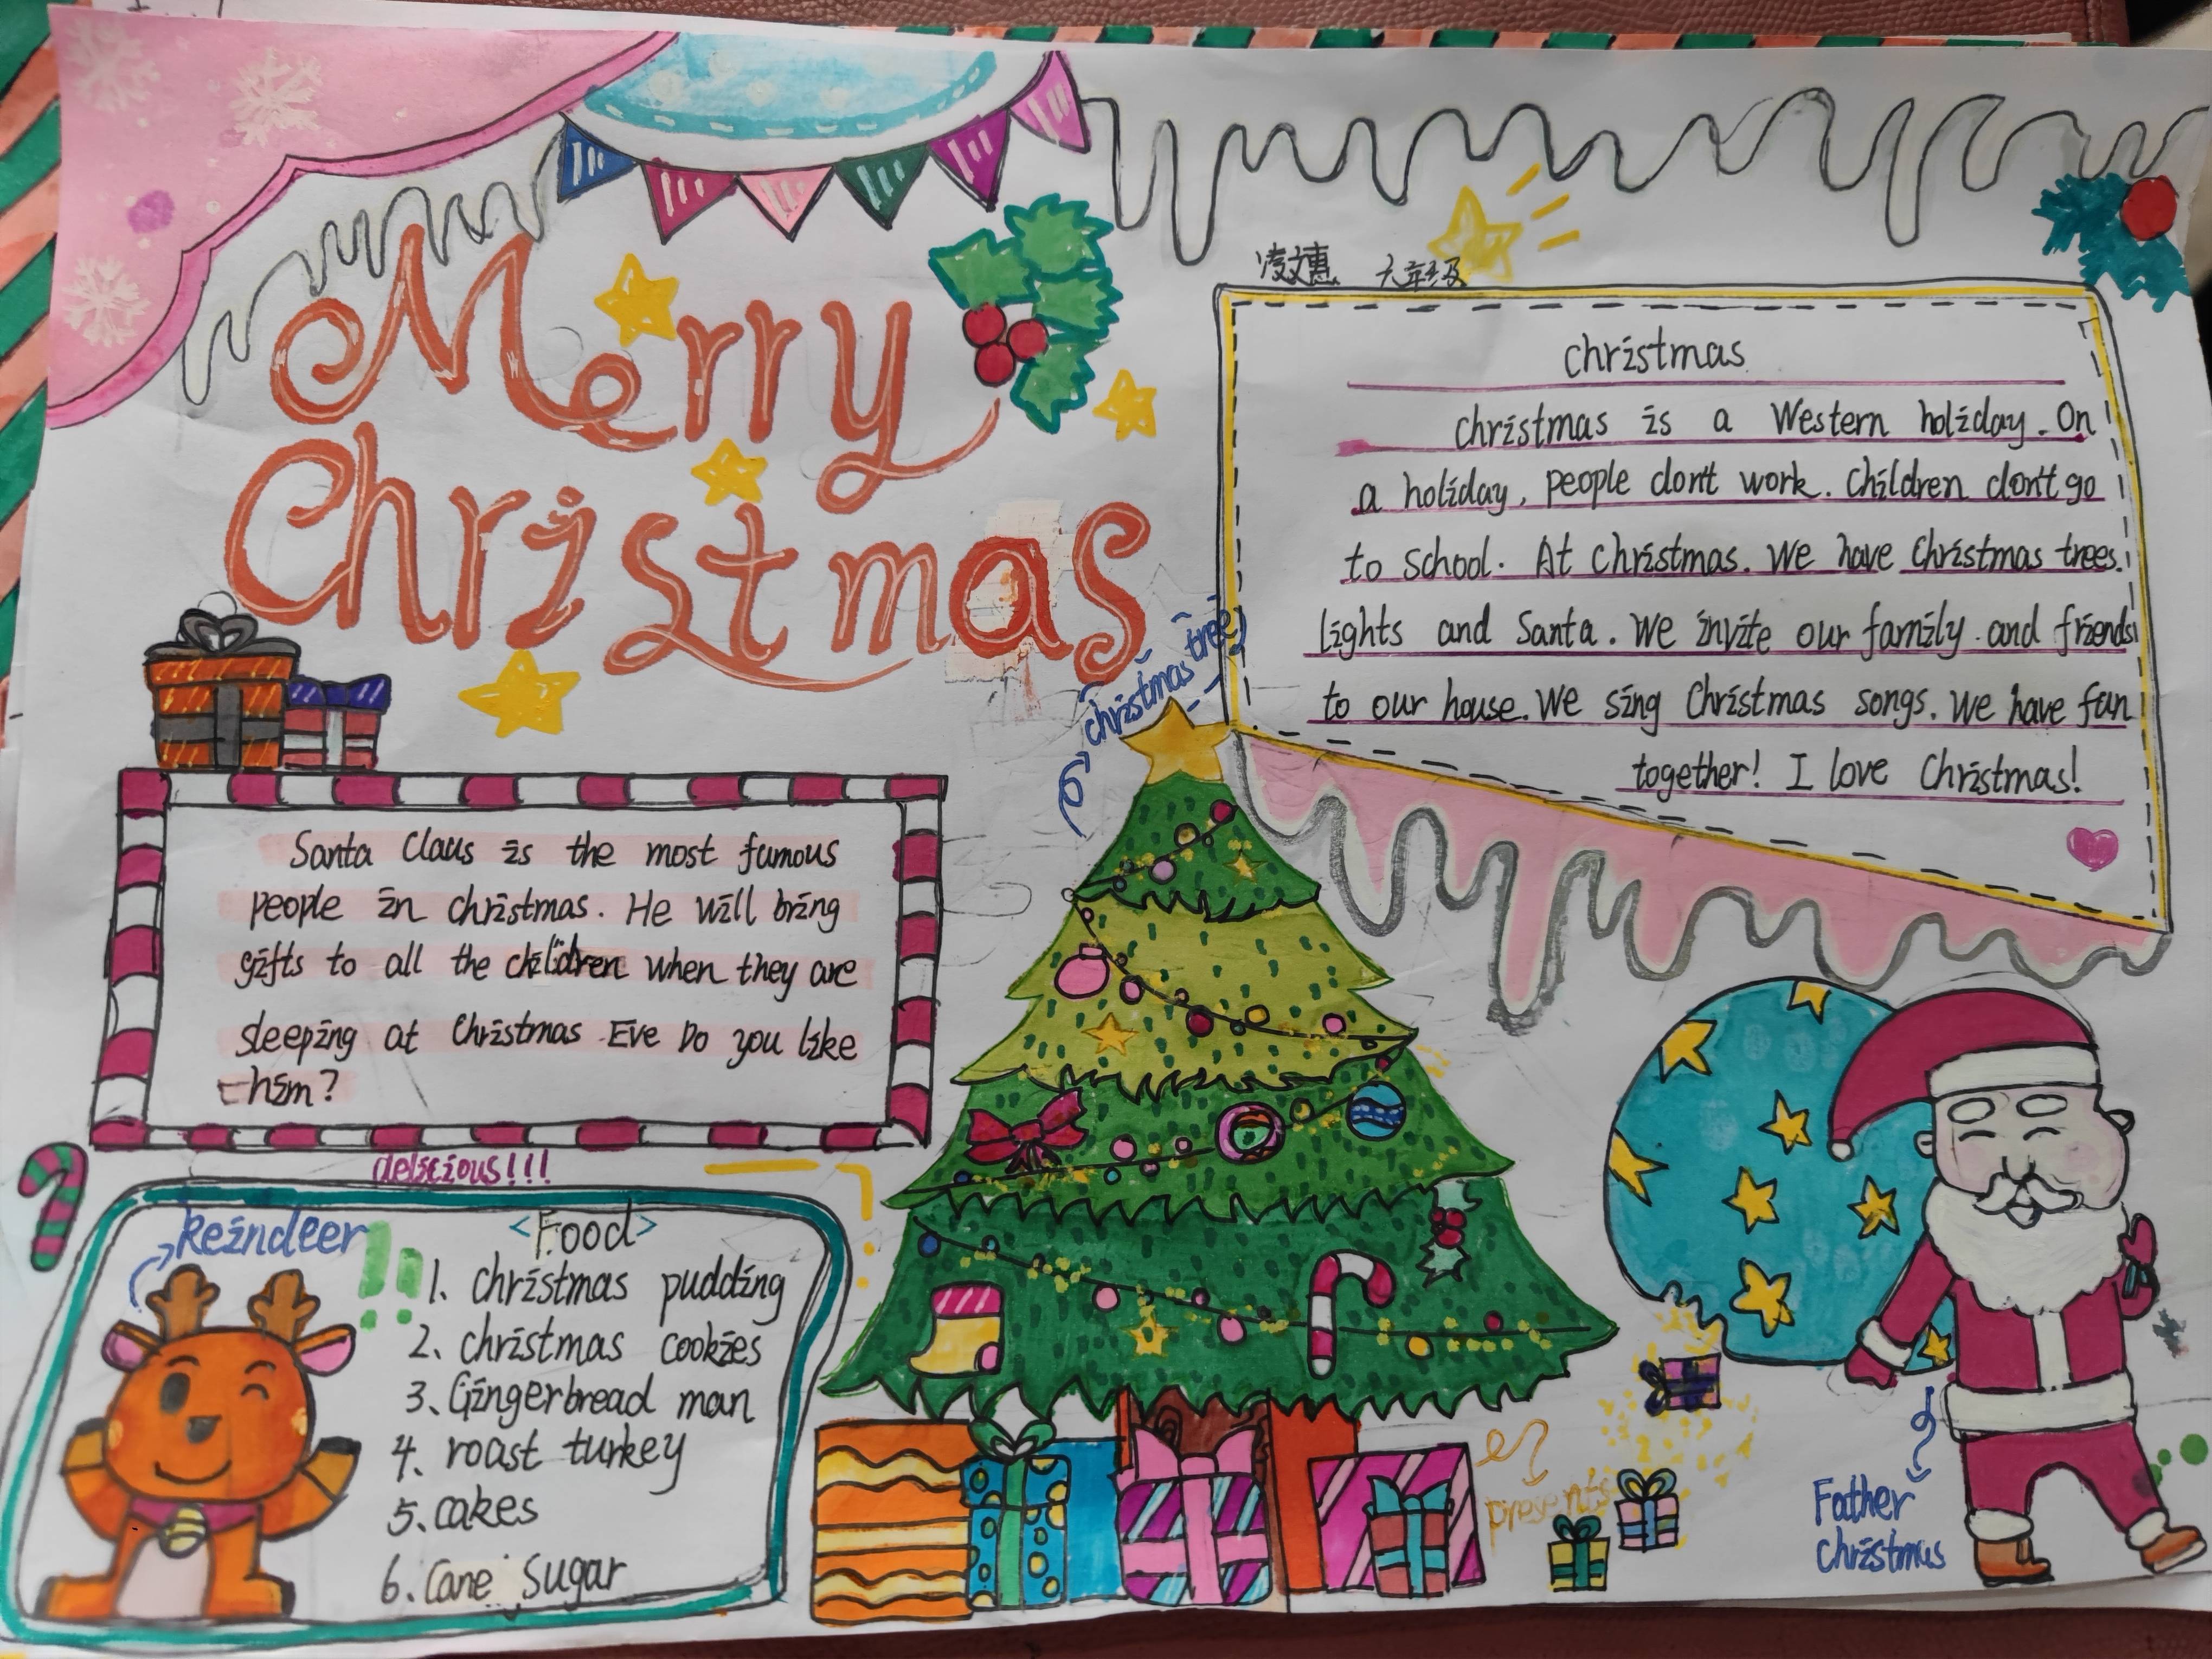 Merry
Christmas
凌文惠 六年级
christmas
christmas is a Western holiday. On
a holiday, people don't work. Children don't go
to School. At Christmas. We have Christmas trees.
lights and Santa. We invite our family and friends
to our house. We sing Christmas songs. We have fun
together! I love Christmas!
christmas tree
Santa Claus is the most famous
people in christmas. He will bring
gifts to all the children when they are
sleeping at Christmas Eve Do you like
them?
delicious!!!
Reindeer
<Food>
1. christmas pudding
2. christmas cookies
3. Gingerbread man
4. roast turkey
5. cakes
6. Cane Sugar
presents
Father
christmas